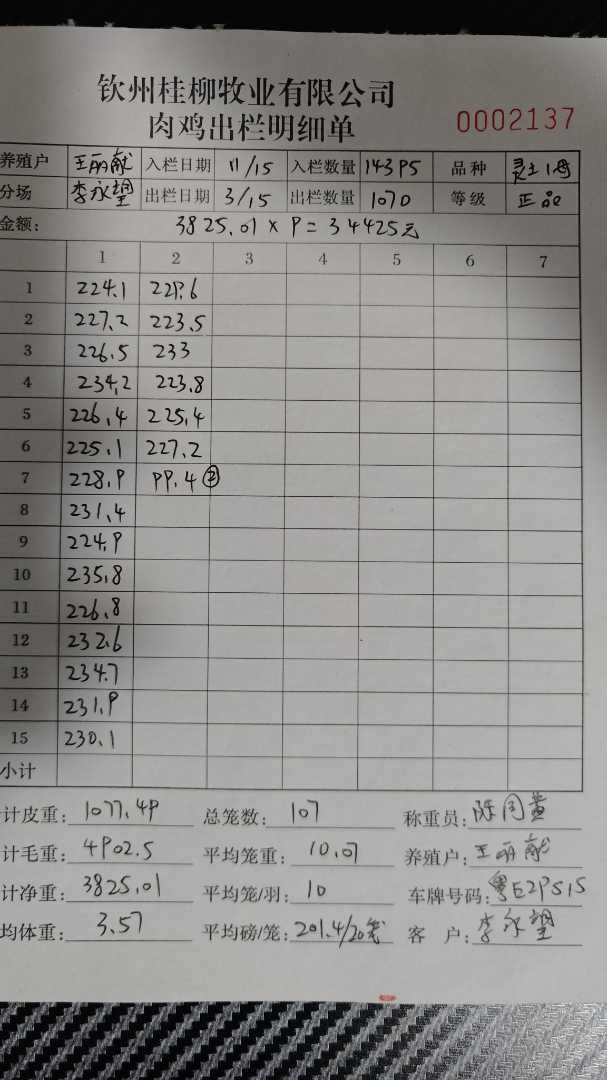 钦州桂柳牧业有限公司
肉鸡出栏明细单
0002137
养殖户 王丽献 入栏日期 11/15 入栏数量 14395 品种 灵土1号
分场 李永望 出栏日期 3/15 出栏数量 1070 等级 正品
金额: 3825.01×9=34425元
1 2 3 4 5 6 7
1 224.1 229.6
2 227.2 223.5
3 226.5 233
4 234.2 223.8
5 226.4 225.4
6 225.1 227.2
7 228.9 99.4 ②
8 231.4
9 224.9
10 235.8
11 226.8
12 232.6
13 234.7
14 231.9
15 230.1
小计
计皮重: 1077.49 总笼数: 107 称重员:
计毛重: 4902.5 平均笼重: 10.07 养殖户: 王丽献
计净重: 3825.01 平均笼/羽: 10 车牌号码:
均体重: 3.57 平均磅/笼: 201.4/20笼 客 户: 李永望